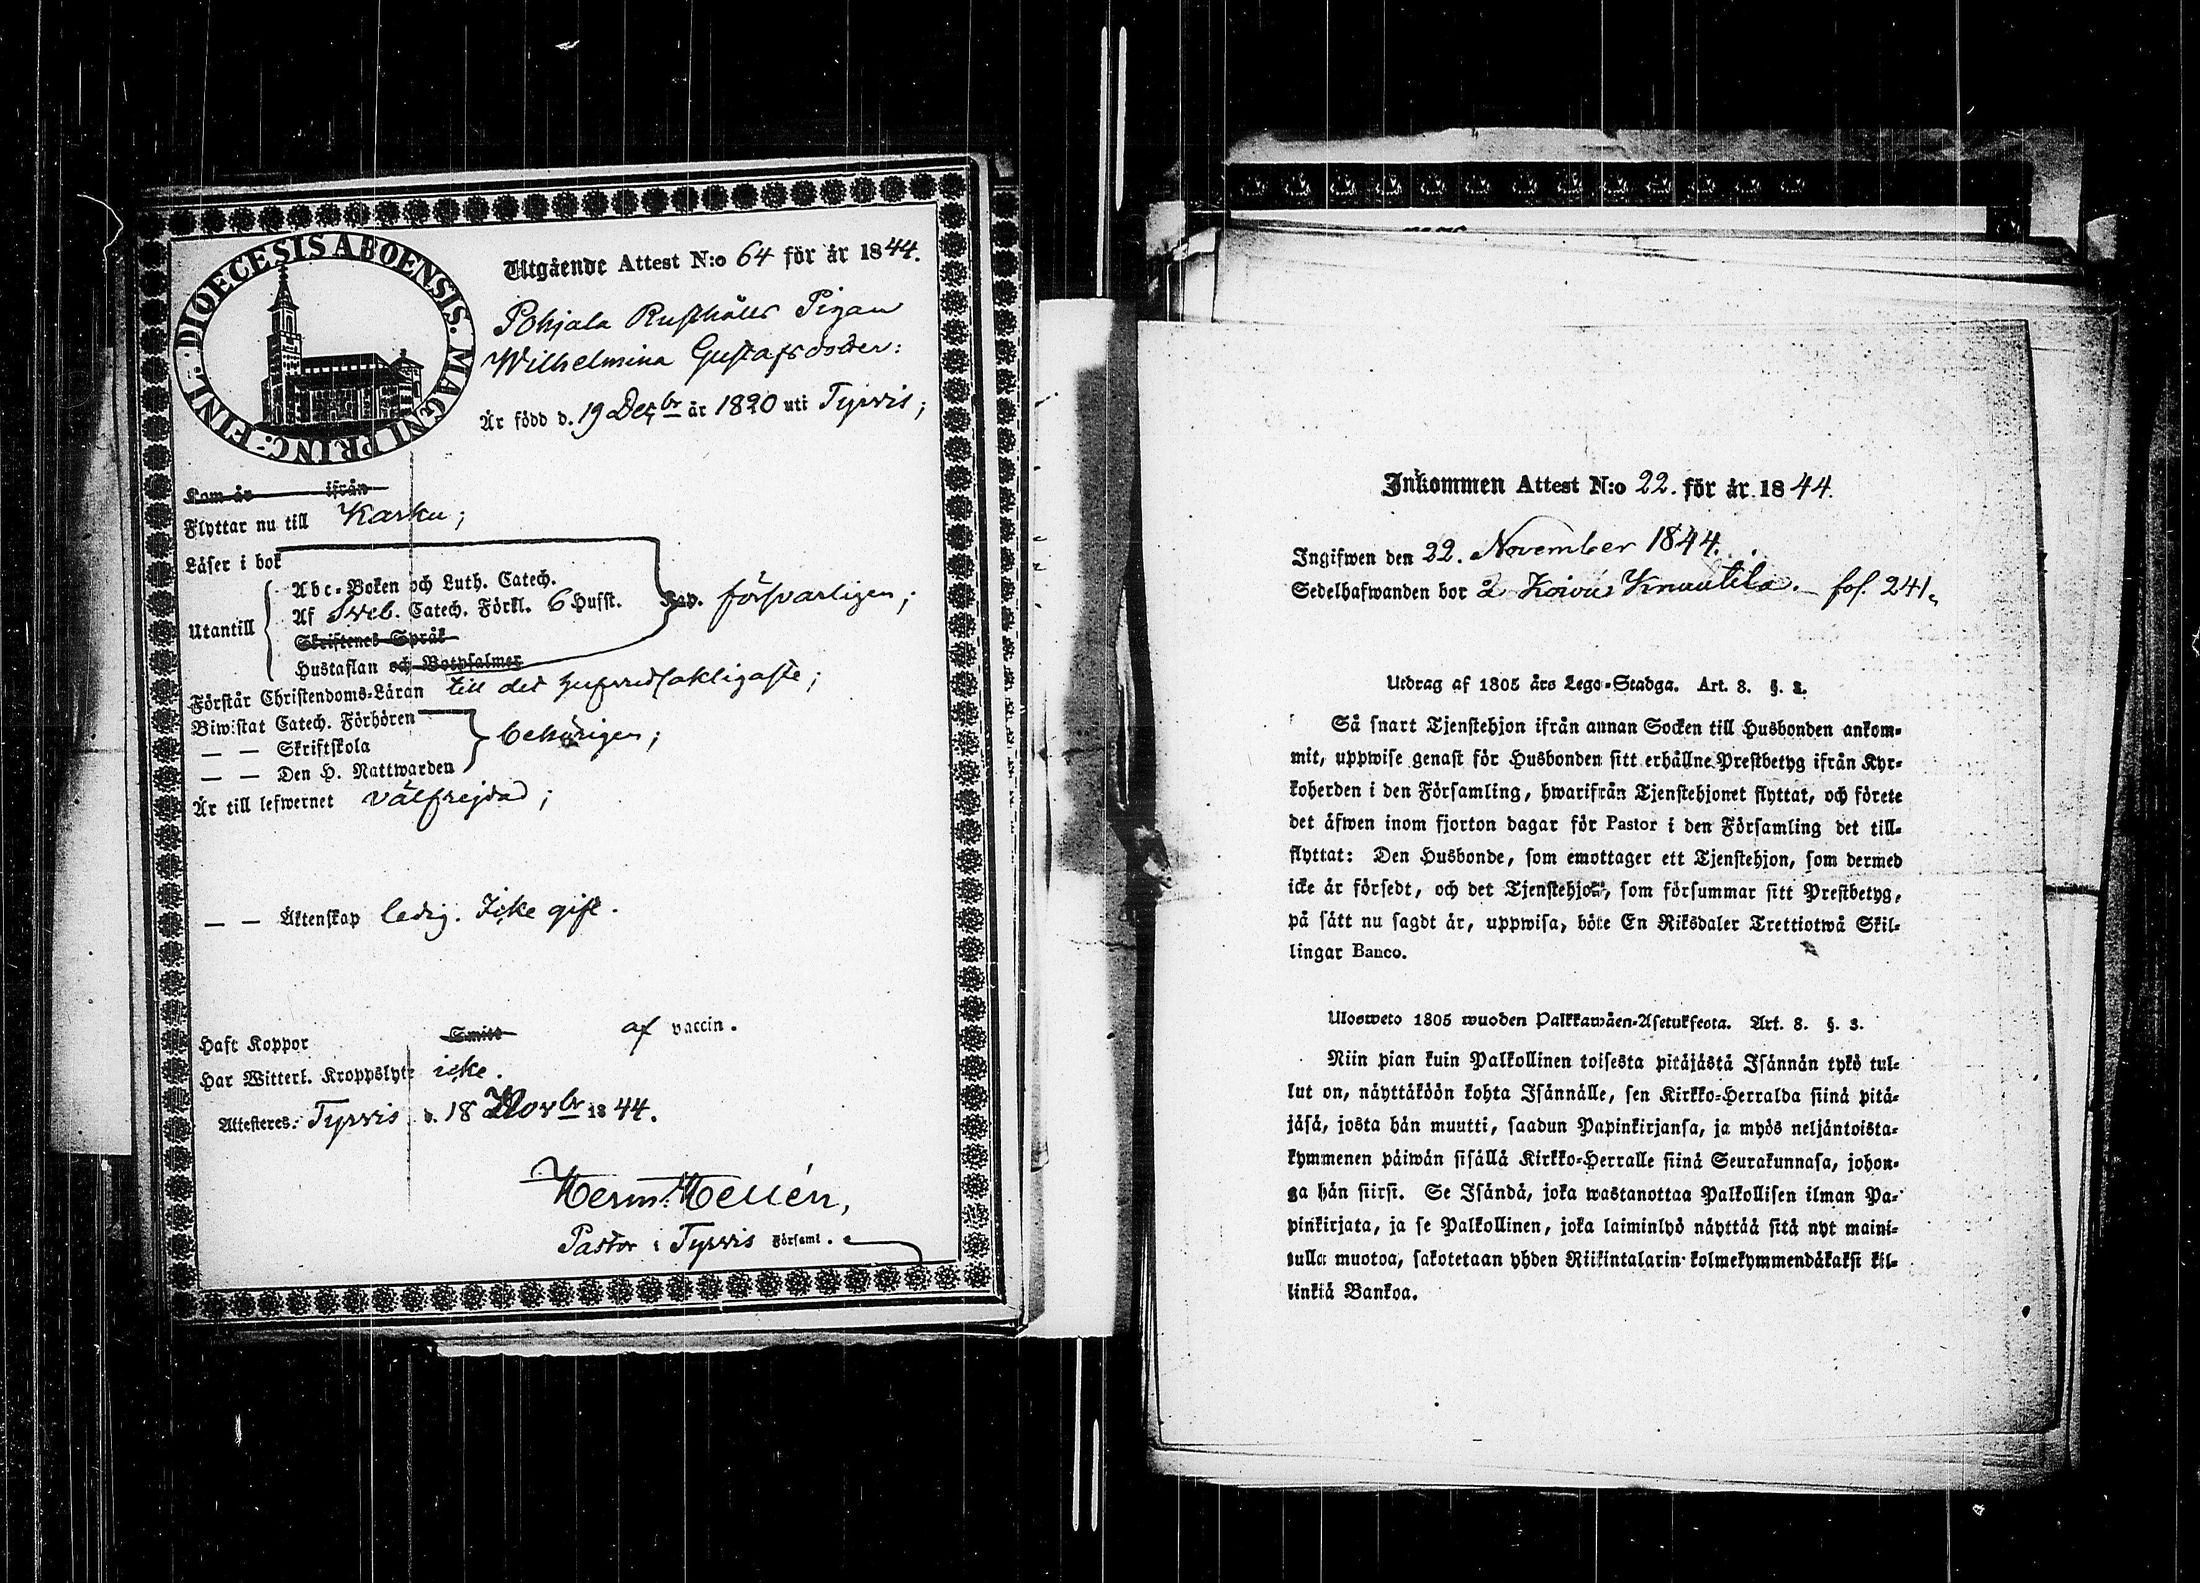 DIOECESIS ABOENSIS. MAGNI PRINC: FINL:
Utgående Attest N:o 64 för år 1844.
Pohjala Rusthålls Pigan
Wilhelmina Gustafsdotter:
Är född d. 19 Decbr år 1820 uti Tyrvis;
Kom år ifrån
Flyttar nu till Karku;
Läser i bok
Utantill
Abc-Boken och Luth. Catech.
Af Sveb. Catech. Förkl. 6 Hufst. försvarligen;
Skriftenes Språk
Hustaflan och Botpsalmer
Förstår Christendoms-Läran till det hufvudsakligaste;
Biwistat Catech. Förhören
— — Skriftskola behörigen;
— — Den H. Nattwarden
Är till lefwernet välfrejdad;
— — Äktenskap ledig. Icke gift.
Haft Koppor Smitt af vaccin.
Har Witterl. Kroppslyte icke.
Attesteres: Tyrvis d. 18 Novbr 1844.
Herm. Hellén,
Pastor i Tyrvis Församl.
Inkommen Attest N:o 22. för år 1844.
Ingifwen den 22. November 1844.
Sedelhafwanden bor å Knuutila. fol. 241.
Utdrag af 1805 års Lego-Stadga. Art. 8. §. 3.
Så snart Tjenstehjon ifrån annan Socken till Husbonden ankom-
mit, uppwise genast för Husbonden sitt erhållne Prestbetyg ifrån Kyr-
koherden i den Församling, hwarifrån Tjenstehjonet flyttat, och förete
det äfwen inom fjorton dagar för Pastor i den Församling det till-
flyttat: Den Husbonde, som emottager ett Tjenstehjon, som dermed
icke är försedt, och det Tjenstehjon, som försummar sitt Prestbetyg,
på sätt nu sagdt är, uppwisa, böte En Riksdaler Trettiotwå Skil-
lingar Banco.
Ulosweto 1805 wuoden Palkkawäen-Asetuksesta. Art. 8. §. 3.
Niin pian kuin Palkollinen toisesta pitäjästä Isännän tykö tul-
lut on, näyttäköön kohta Isännälle, sen Kirkko-Herralda siinä pitä-
jäsä, josta hän muutti, saadun Papinkirjansa, ja myös neljäntoista-
kymmenen päiwän sisällä Kirkko-Herralle siinä Seurakunnasa, johon-
ga hän siirsi. Se Isändä, joka wastanottaa Palkollisen ilman Pa-
pinkirjata, ja se Palkollinen, joka laiminlyö näyttää sitä nyt maini-
tulla muotoa, sakotetaan yhden Riikintalarin kolmekymmendäkaksi kil-
linkiä Bankoa.